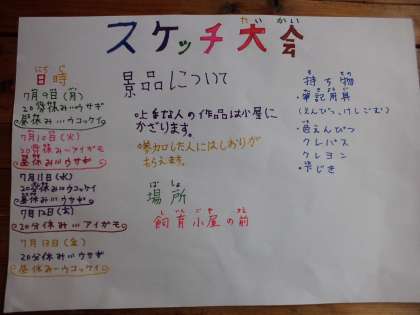 スケッチ大会
たいかい
日時
にちじ
7月9日(月)
20分休み…ウサギ
昼休み…ウコッケイ
7月10日(火)
20分休み…アイガモ
昼休み…ウサギ
7月11日(水)
20分休み…ウコッケイ
昼休み…ウサギ
7月12日(木)
20分休み…アイガモ
7月13日(金)
20分休み…ウサギ
昼休み…ウコッケイ
景品について
・上手な人の作品は小屋に
かざります。
・参加した人にはしおりが
もらえます。
ばしょ
場所
しいくごやまえ
飼育小屋の前
ももの
持ち物
・筆記用具
(えんぴつ、けしごむ)
・色えんぴつ
・クレパス
・クレヨン
・下じき